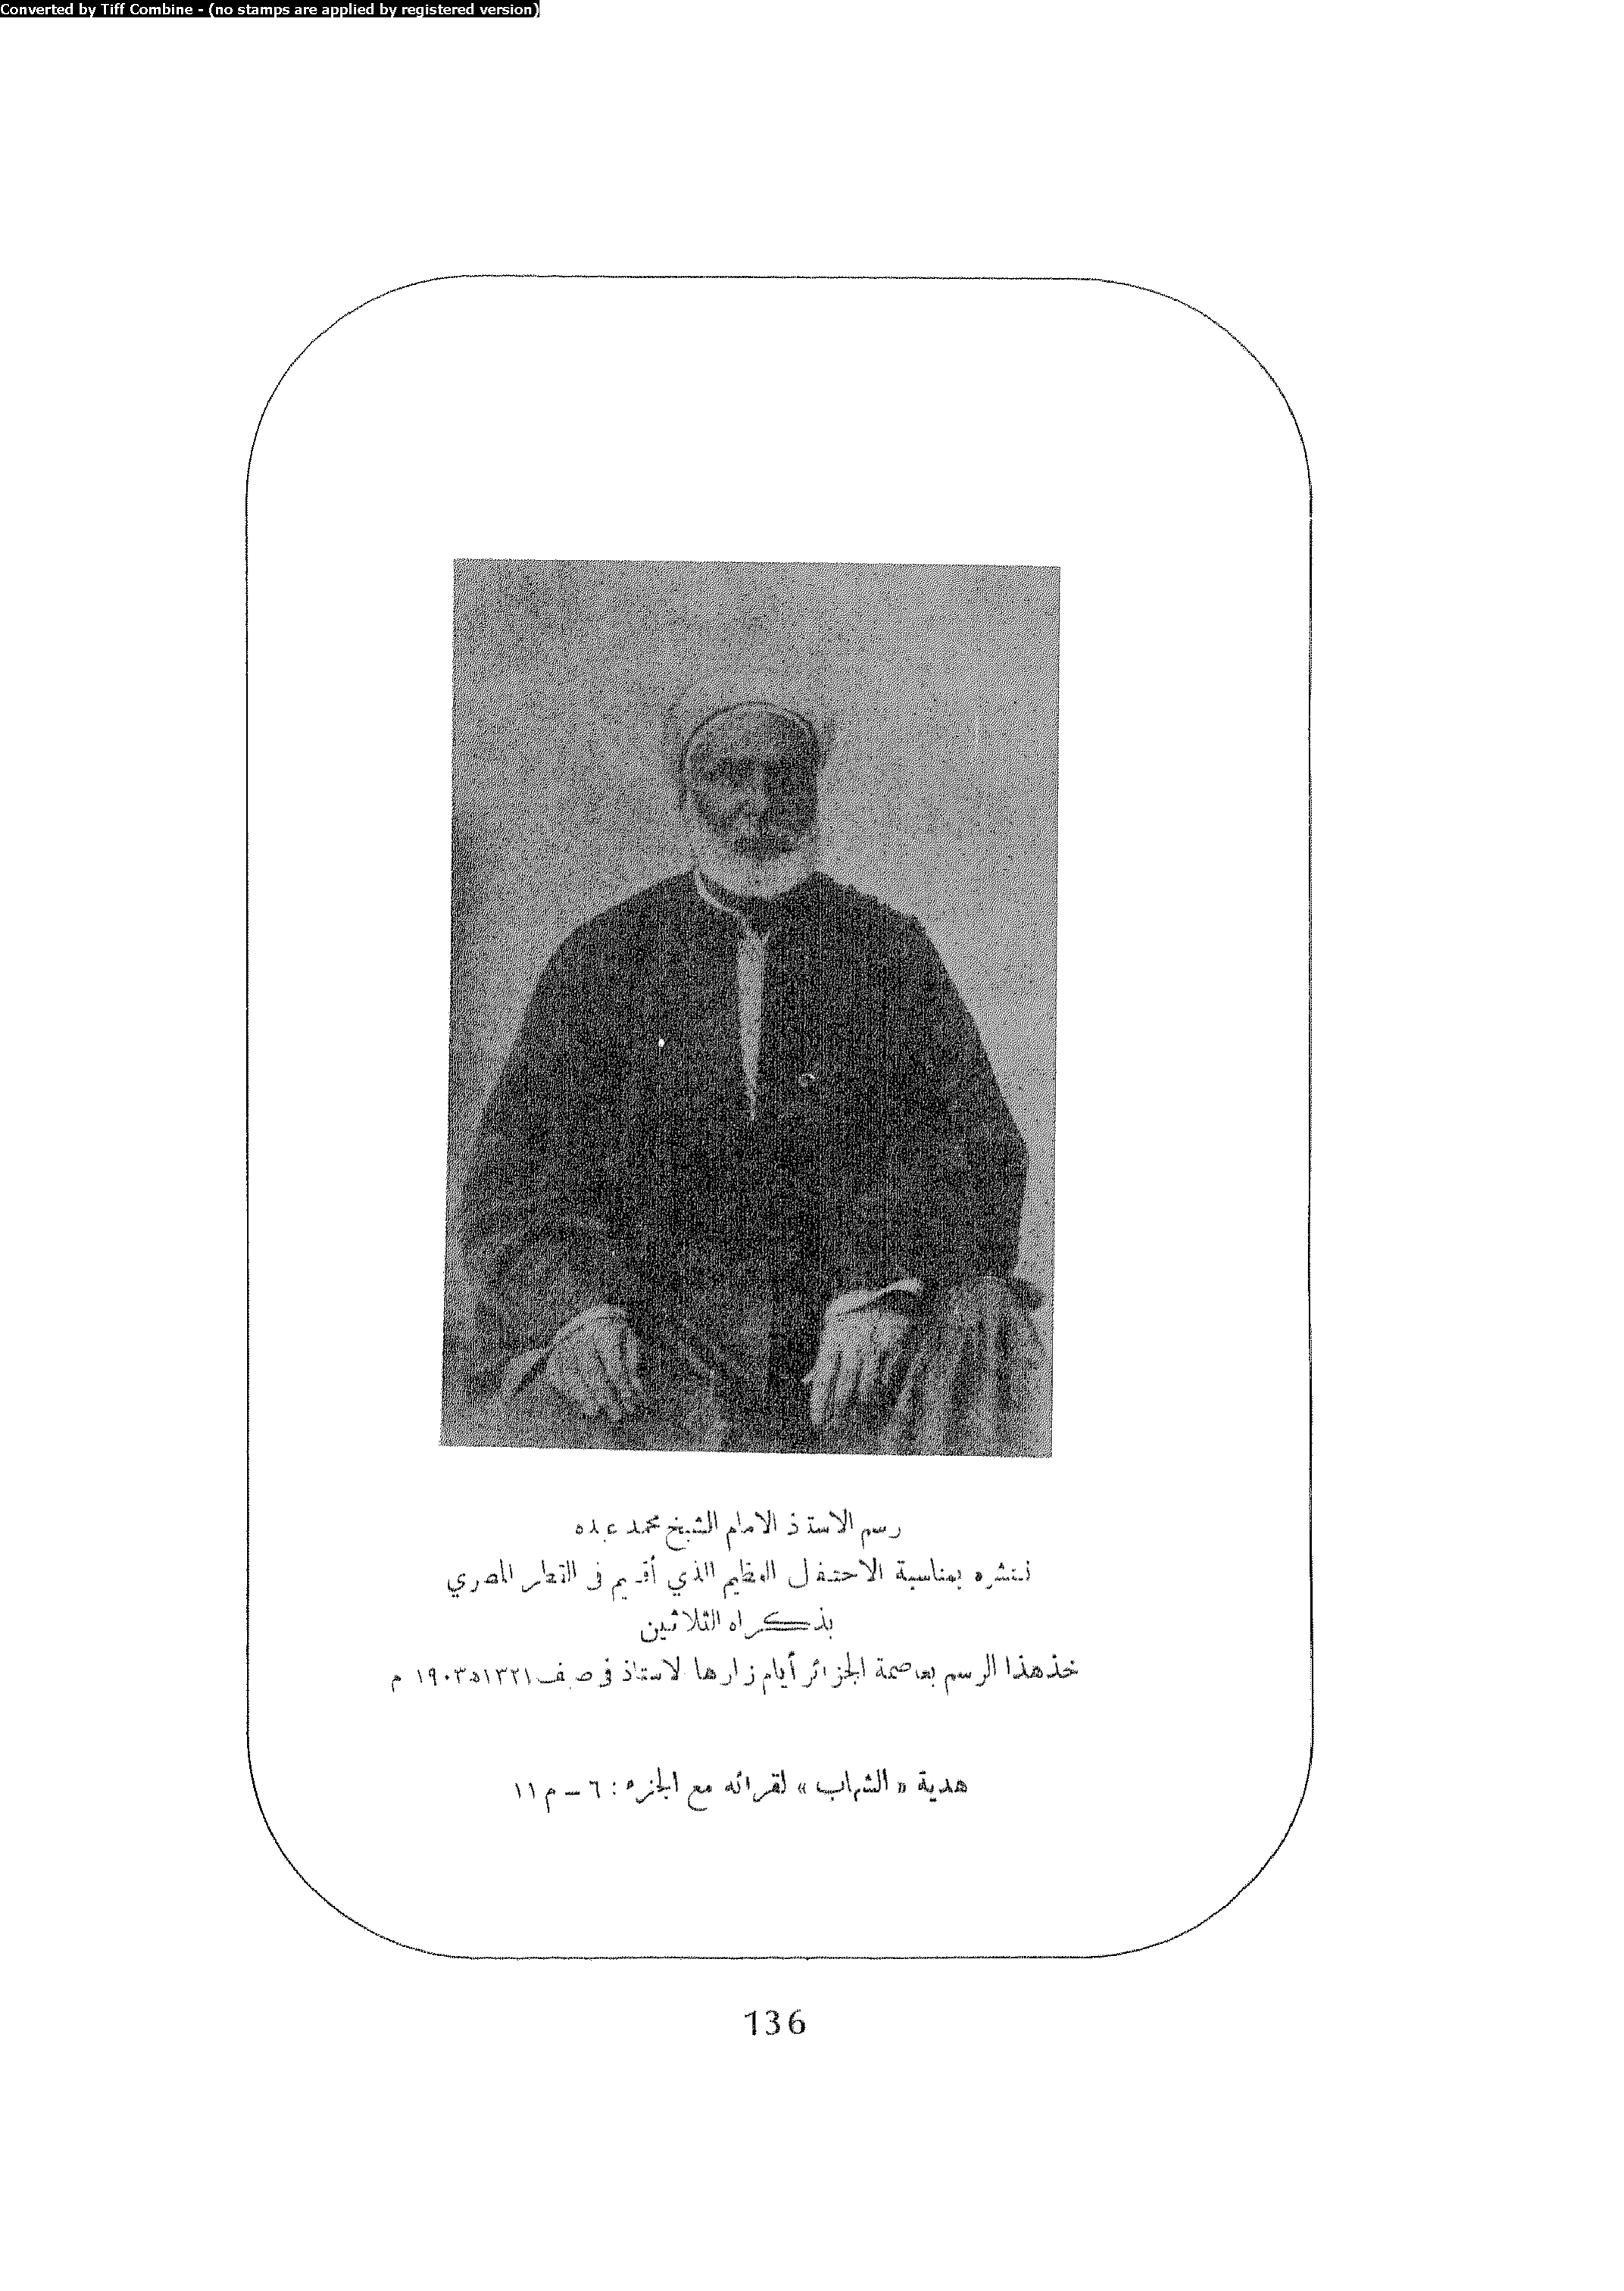 Converted by Tiff Combine - (no stamps are applied by registered version)
رسم الاستاذ الامام الشيخ محمد عبده
ننشره بمناسبة الاحتفال العظيم الذي أقيم في القطر المصري
بذكراه الثلاثين
خذ هذا الرسم بعاصمة الجزائر أيام زارها لاستاذ في صيف ١٣٢١ه ١٩٠٣ م
هدية « الشهاب » لقرائه مع الجزء : ٦ – م ١١
136